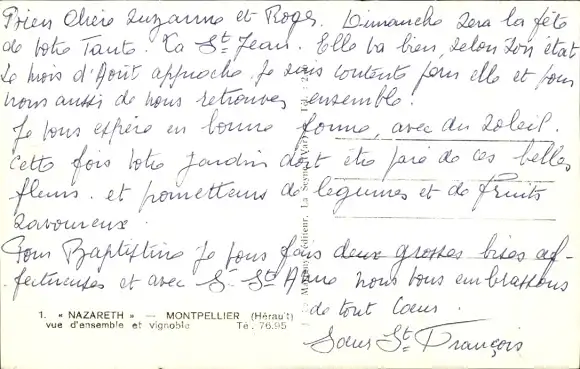 Bien Chère Suzanne et Roger. Dimanche sera la fête
de votre Tante. La St Jean. Elle va bien, selon son état
Le mois d'Août approche. Je suis contente pour elle et pour
nous aussi de nous retrouver ensemble.
Je vous espère en bonne forme, avec du soleil.
Cette fois votre Jardin doit être paré de ces belles
fleurs. et prometteurs de légumes et de fruits
savoureux.
Pour Baptistine Je vous fais deux grosses bises af-
fectueuses et avec S. St Anne nous vous embrassons
de tout Coeur.
Soeur St François
1. « NAZARETH » — MONTPELLIER (Hérault)
vue d'ensemble et vignoble Té. 76.95
éditeur, La Seyne Var